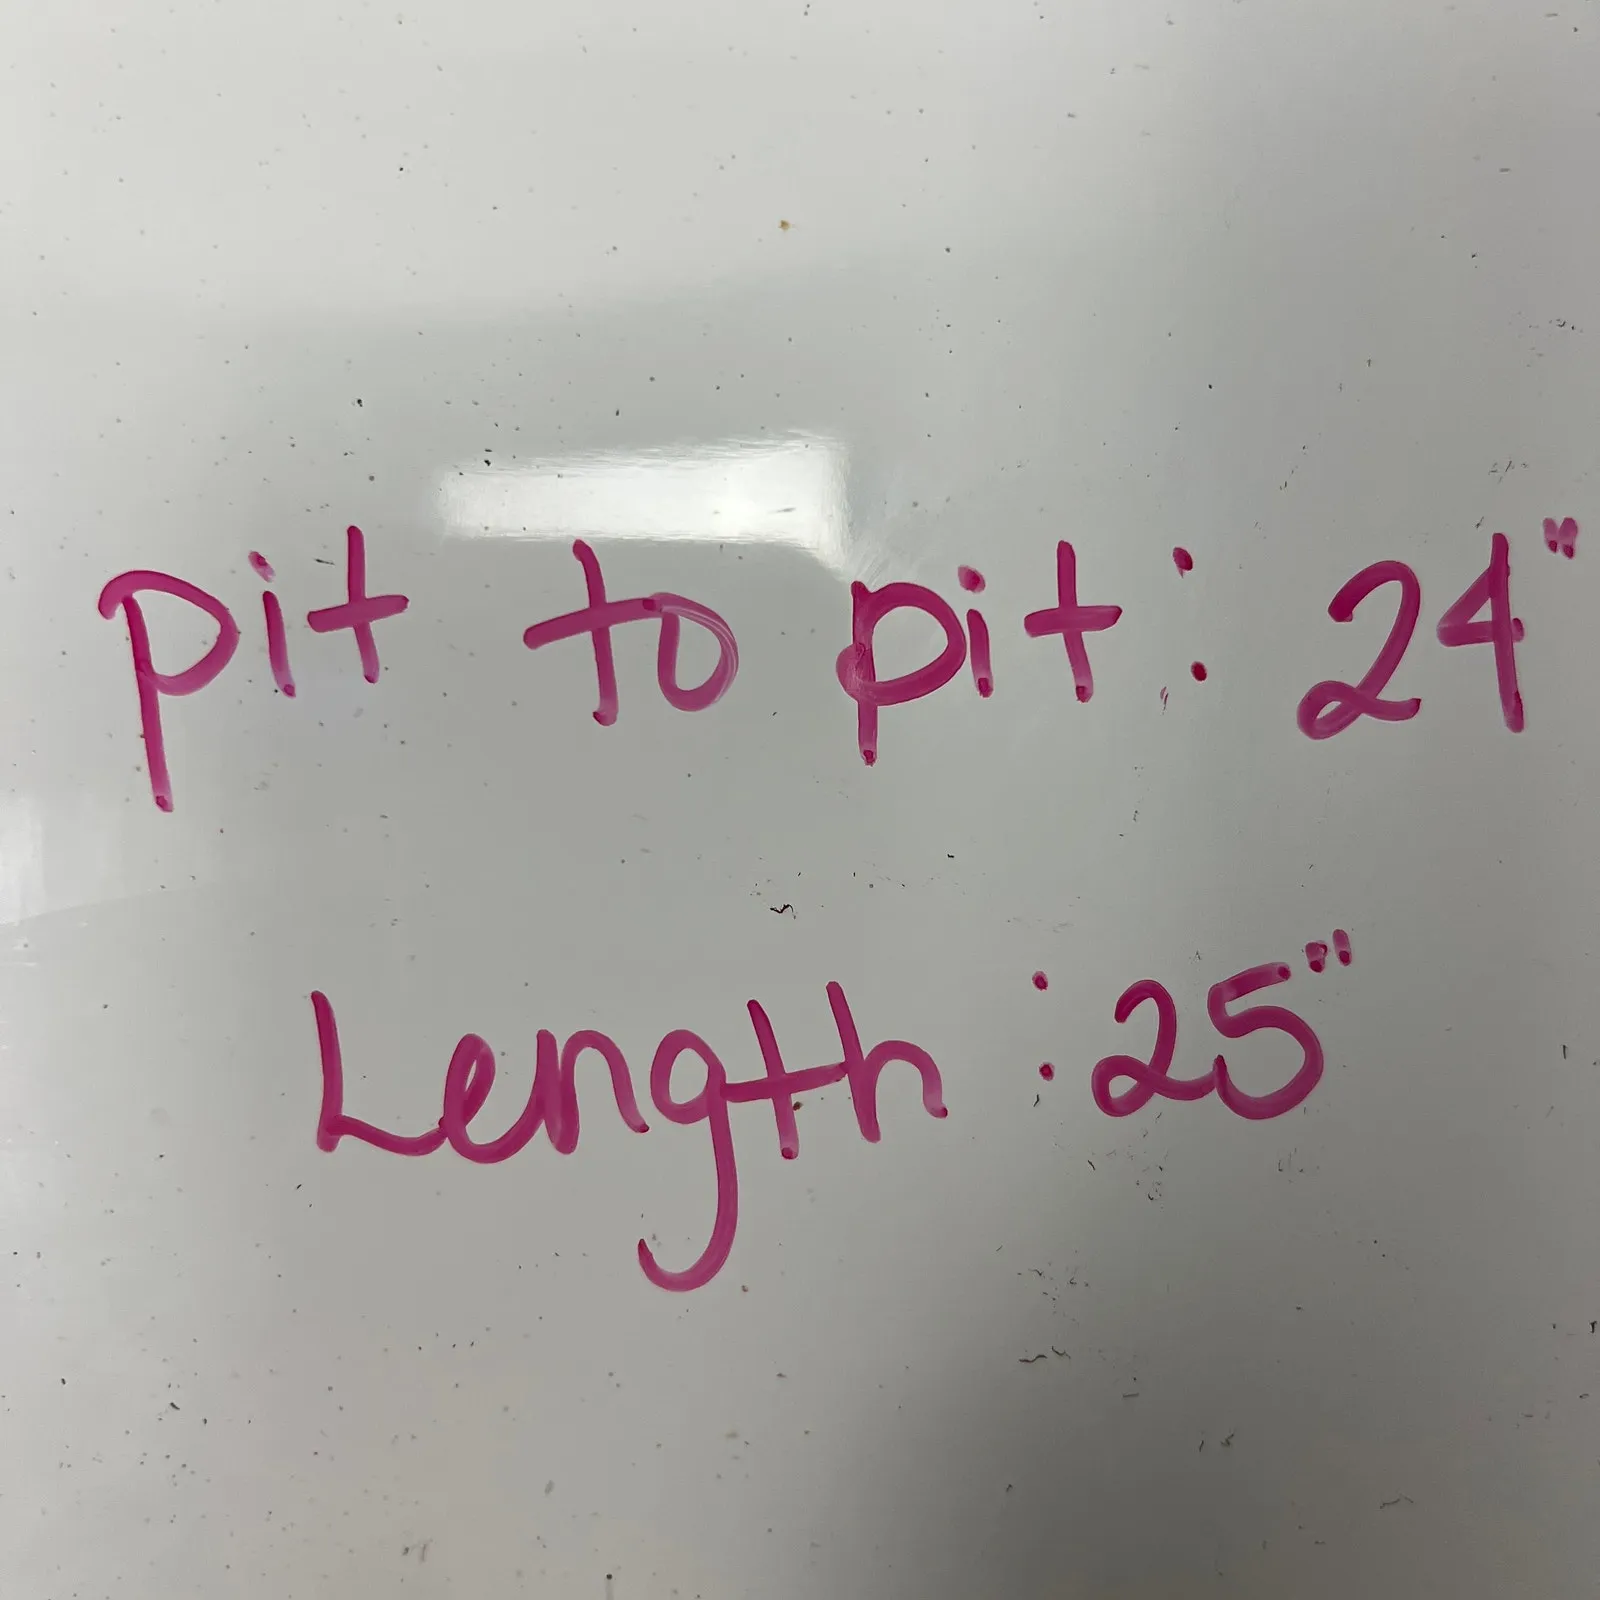 pit to pit: 24"
Length: 25"